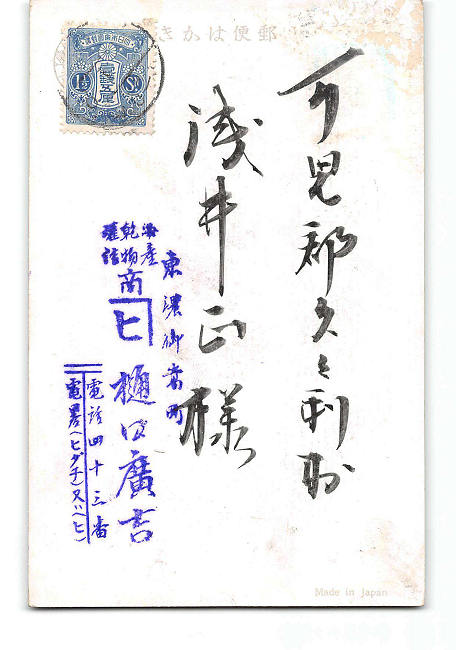 郵便はかき
大日本帝國郵便
壹錢五厘
1½ Sn.
可児郡久々利村
浅井正様
海産
乾物
罐詰
商
ヒ
東濃御嵩町
樋口廣吉
電話四十三番
電畧(ヒグチ)又ハ(ヒ)
Made in Japan